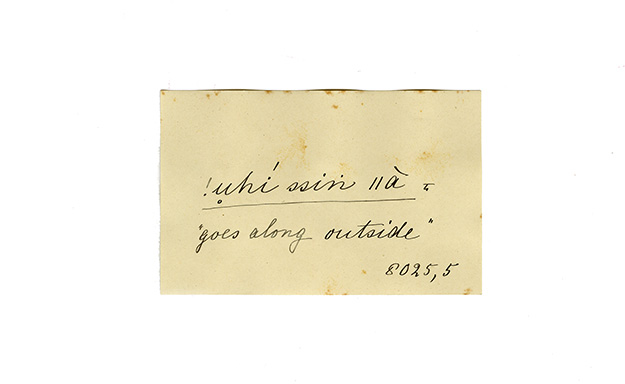 !ụ̊hí ssin̍ ǁà =
"goes along outside"
8025,5